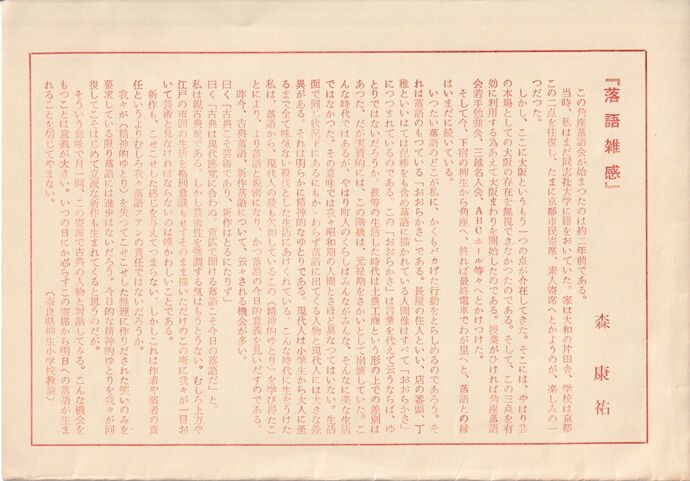 『落語雑感』
森　康祐
この角座落語会が始まったのは約二年前である。
当時、私はまだ同志社大学に籍をおいていた。家は大和の片田舎、学校は京都
この二点を往復し、たまに京都市民寄席、素人寄席へとかようのが、楽しみの一
つだった。
しかし、ここに大阪というもう一つの点が介在してきた。そこには、やはり芸
の本場としての大阪の存在を無視できなかったのである。そして、この三点を有
効に利用する為あえて大阪まわりを開始したのである。授業がひければ角座落語
会若手勉強会、三越名人会、ABCホール等々へとかけつけた。
そして今、下宿の柳生から角座へ、終れば最終電車でわが里へと、落語との縁
はいまだに続いている。
いったい落語のどこが私に、かくもイカげた行動をとらしめるのであろう。そ
れは落語のもつている「おおらかさ」である。長屋の住人といい、店の番頭、丁
稚といい、はては泥棒を含め落語に描かれている人間像はすべて「おおらかさ」
につつまれているのである。この「おおらかさ」は言葉を代えて云うならば、ゆ
とりではないだろうか。彼等の生活した時代は士農工商という形の上での差別は
あった。だが実質的には、この階級は、元禄期をさかいとして崩壊していた。こ
んな時代ではあるが、やはり町人のくらしはみんながみんな、そんなに楽な生活
ではなかった。その意味では我々昭和期の人間とさほど異なってはいない。生活
面で同じ状況下にあるにもかゝわらず落語に出てくる人物と現代人には大きな差
異がある。それは明らかに精神的なゆとりである。現代人は小学生から大人に至
るまで全て味気ない殺伐とした生活にあけくれている。こんな時代に生をうけた
私は、落語から、現代人の最も欠如しているこの（精神的ゆとり）を学び得たこ
とにより、より落語と親密になり、かつ落語の今日的意義を見いだすのである。
昨今、古典落語、新作落語について、云々される機会が多い。
曰く「古典こそ芸術であり、新作はとるにたりず」
曰く「古典は現代感覚に合わぬ、背広で聞ける落語こそ今日の落語だ」と。
私は親古典派である。しかし芸術性を強調する気はもうとうない。むしろ上方や
江戸の市間の生活を格別意識もせずそのまま描いただけのこの噺に我々が一目お
いて芸術と見なければならないのは嘆かわしいことである。
新作も、こせこせした感じを与えてつまらない。しかしこれは作者や演者の責
任というよりむしろ我々落語ファンの責任ではないだろうか。
我々が（精神的ゆとり）を失つてこせこせした無理に作りだされた笑いのみを
要求している限り落語には進歩はないだろう。今日的な精神的ゆとりを我々が回
復してこそはじめて立派な新作も生まれてくると思うのだが。
そういう意味で月一回、この寄席で古典の人物と対話してみる。こんな機会を
もつことは意義が大きい。いつの日にか必らずこの寄席から明日への落語が生ま
れることを信じてやまない。
（奈良県柳生小学校教諭）